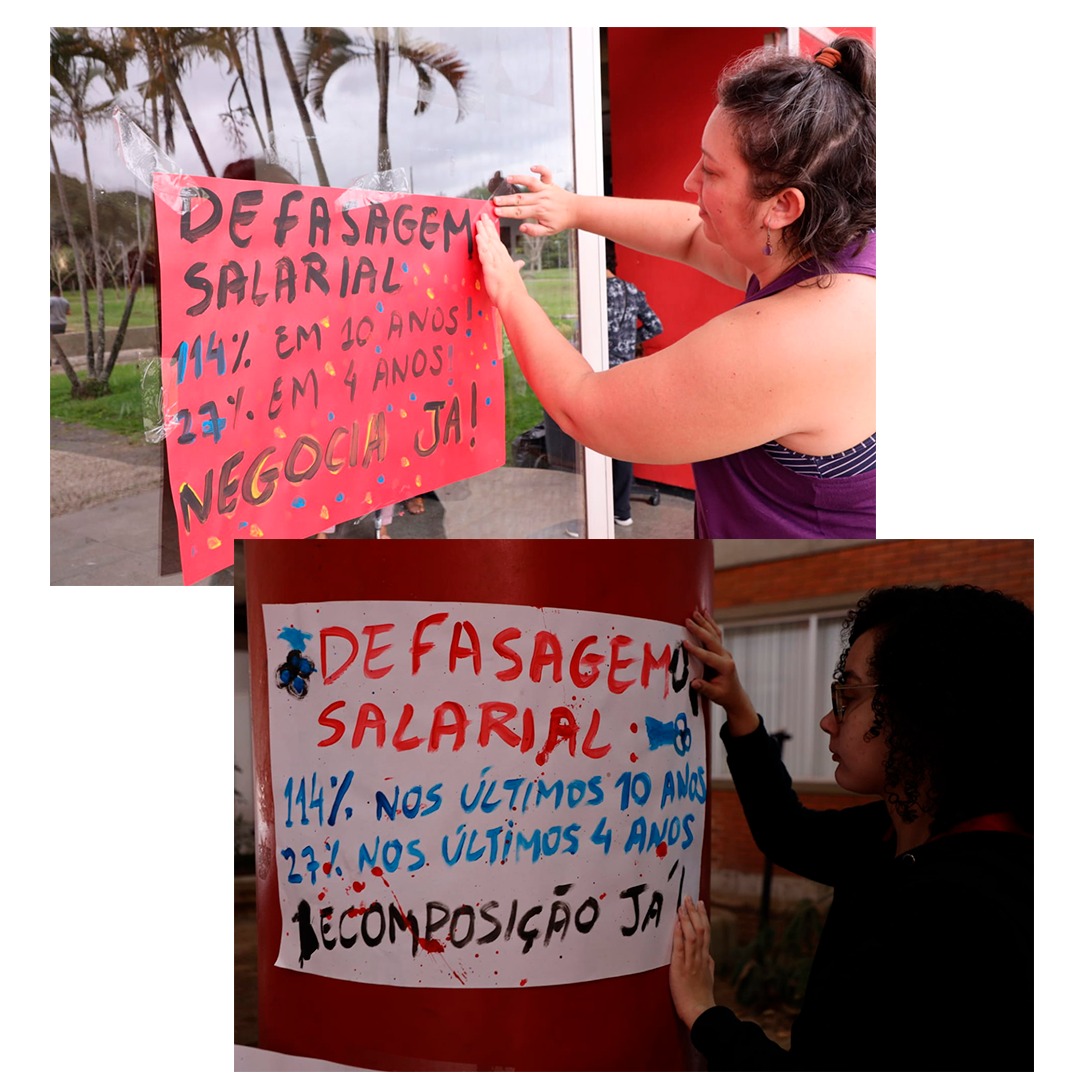 DEFASAGEM
SALARIAL
114% EM 10 ANOS!
27% EM 4 ANOS!
NEGOCIA JA!
DEFASAGEM
SALARIAL:
114% NOS ÚLTIMOS 10 ANOS
27% NOS ÚLTIMOS 4 ANOS
RECOMPOSIÇÃO JÁ!